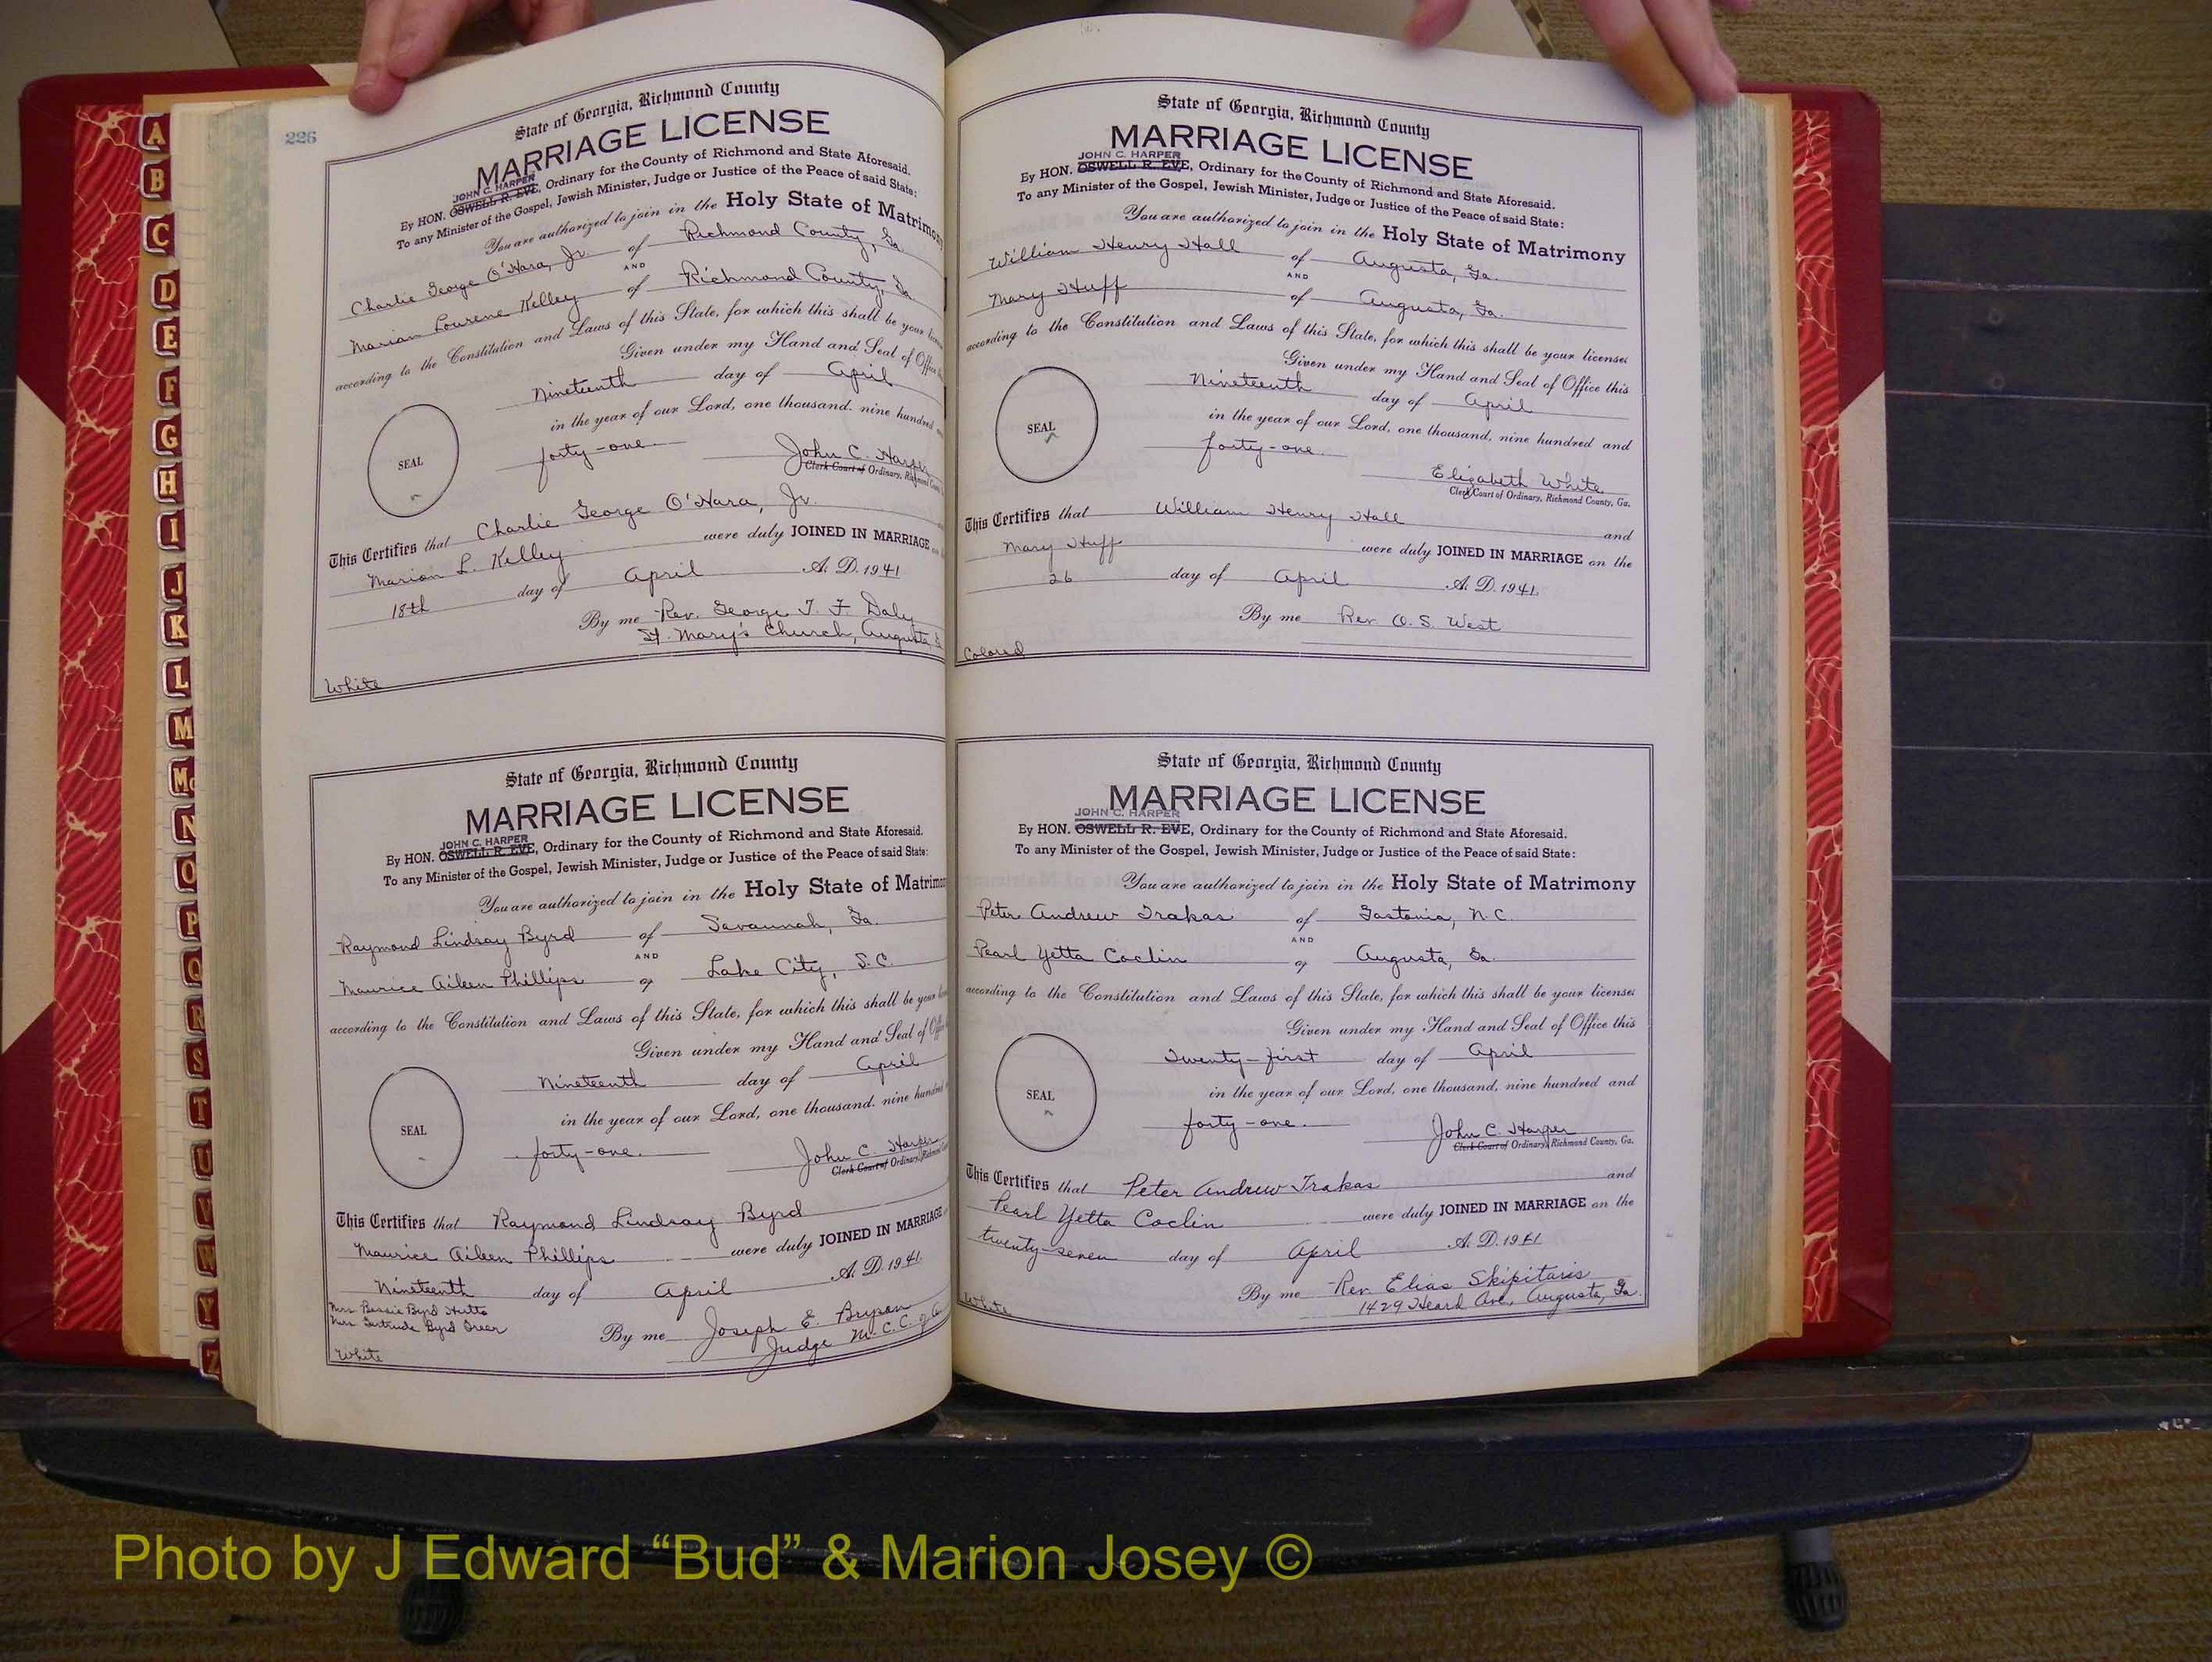 226
State of Georgia, Richmond County
MARRIAGE LICENSE
JOHN C. HARPER
By HON. OSWELL R. EVE, Ordinary for the County of Richmond and State Aforesaid.
To any Minister of the Gospel, Jewish Minister, Judge or Justice of the Peace of said State:
You are authorized to join in the Holy State of Matrimony
Charlie George O'Hara, Jr. of Richmond County, Ga.
AND
Marian Lourene Kelley of Richmond County, Ga.
according to the Constitution and Laws of this State, for which this shall be your
Given under my Hand and Seal of Office
Nineteenth day of April
in the year of our Lord, one thousand. nine hundred
forty-one.
SEAL
John C. Harper
Clerk Court of Ordinary, Richmond
This Certifies that Charlie George O'Hara, Jr.
Marian L. Kelley were duly JOINED IN MARRIAGE
18th day of April A. D. 1941
By me Rev. George T. F. Daly
St. Mary's Church, Augusta
White
State of Georgia, Richmond County
MARRIAGE LICENSE
JOHN C. HARPER
By HON. OSWELL R. EVE, Ordinary for the County of Richmond and State Aforesaid.
To any Minister of the Gospel, Jewish Minister, Judge or Justice of the Peace of said State:
You are authorized to join in the Holy State of Matrimony
Raymond Lindsay Byrd of Savannah, Ga.
AND
Maurice Aileen Phillips of Lake City, S.C.
according to the Constitution and Laws of this State, for which this shall be your
Given under my Hand and Seal of
Nineteenth day of April
in the year of our Lord, one thousand. nine hundred
forty-one.
SEAL
John C. Harper
Clerk Court of Ordinary, Richmond
This Certifies that Raymond Lindsay Byrd
Maurice Aileen Phillips were duly JOINED IN MARRIAGE
Nineteenth day of April A. D. 1941.
Mrs. Bessie Byrd Hutto
Mrs. Gertrude Byrd Greer
By me Joseph E. Bryson
Judge M.C.C. of
White
State of Georgia, Richmond County
MARRIAGE LICENSE
JOHN C. HARPER
By HON. OSWELL R. EVE, Ordinary for the County of Richmond and State Aforesaid.
To any Minister of the Gospel, Jewish Minister, Judge or Justice of the Peace of said State:
You are authorized to join in the Holy State of Matrimony
William Henry Hall of Augusta, Ga.
AND
Mary Huff of Augusta, Ga.
according to the Constitution and Laws of this State, for which this shall be your license:
Given under my Hand and Seal of Office this
Nineteenth day of April
in the year of our Lord, one thousand, nine hundred and
forty-one.
SEAL
Elizabeth White
Clerk Court of Ordinary, Richmond County, Ga.
This Certifies that William Henry Hall and
Mary Huff were duly JOINED IN MARRIAGE on the
26 day of April A. D. 1941.
By me Rev. O. S. West
Colored
State of Georgia, Richmond County
MARRIAGE LICENSE
JOHN C. HARPER
By HON. OSWELL R. EVE, Ordinary for the County of Richmond and State Aforesaid.
To any Minister of the Gospel, Jewish Minister, Judge or Justice of the Peace of said State:
You are authorized to join in the Holy State of Matrimony
Peter Andrew Trakas of Gastonia, N.C.
AND
Pearl Yetta Coclin of Augusta, Ga.
according to the Constitution and Laws of this State, for which this shall be your license:
Given under my Hand and Seal of Office this
Twenty-first day of April
in the year of our Lord, one thousand, nine hundred and
forty-one.
SEAL
John C. Harper
Clerk Court of Ordinary, Richmond County, Ga.
This Certifies that Peter Andrew Trakas and
Pearl Yetta Coclin were duly JOINED IN MARRIAGE on the
twenty-seven day of April A. D. 1941
By me Rev. Elias Skipitaris
1429 Heard Ave, Augusta, Ga.
White
A
B
C
D
E
F
G
H
I
J
K
L
M
Mc
N
O
P
Q
R
S
T
U
V
W
Y
Z
Photo by J Edward “Bud” & Marion Josey ©